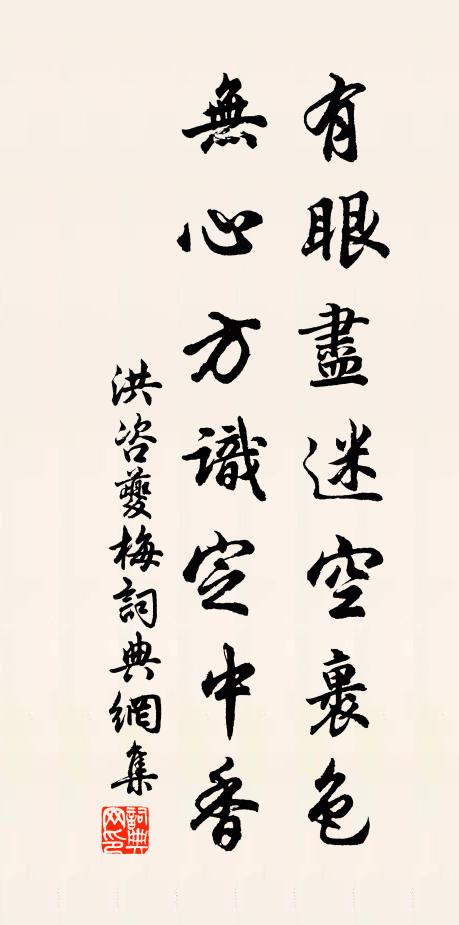 有眼盡迷空裹色
無心方識定中香
洪咨夔梅詞典網集
詞典網印